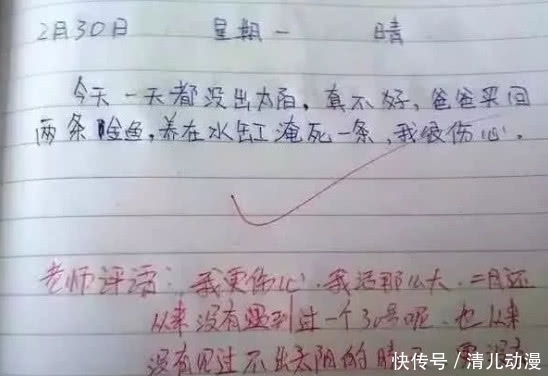 2月30日 星期一 晴
今天一天都没出太阳,真不好,爸爸买回
两条鱼,养在水缸淹死一条,我很伤心。
老师评语:我更伤心.我活那么大.二月还
从来没有遇到过一个30号呢.也从来
没有见过不出太阳的晴
快传号/清儿动漫